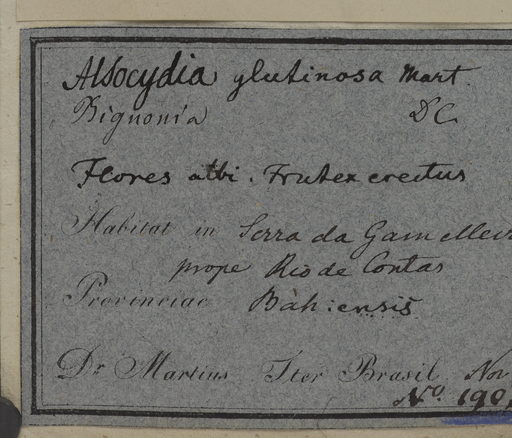 Alsocydia glutinosa Mart.
Bignonia DC
Flores albi. Frutex erectus
Habitat in Serra da Gamelleir
prope Rio de Contas
Provinciae Bahiensis
Dr Martius Iter Brasil Nov
No. 190